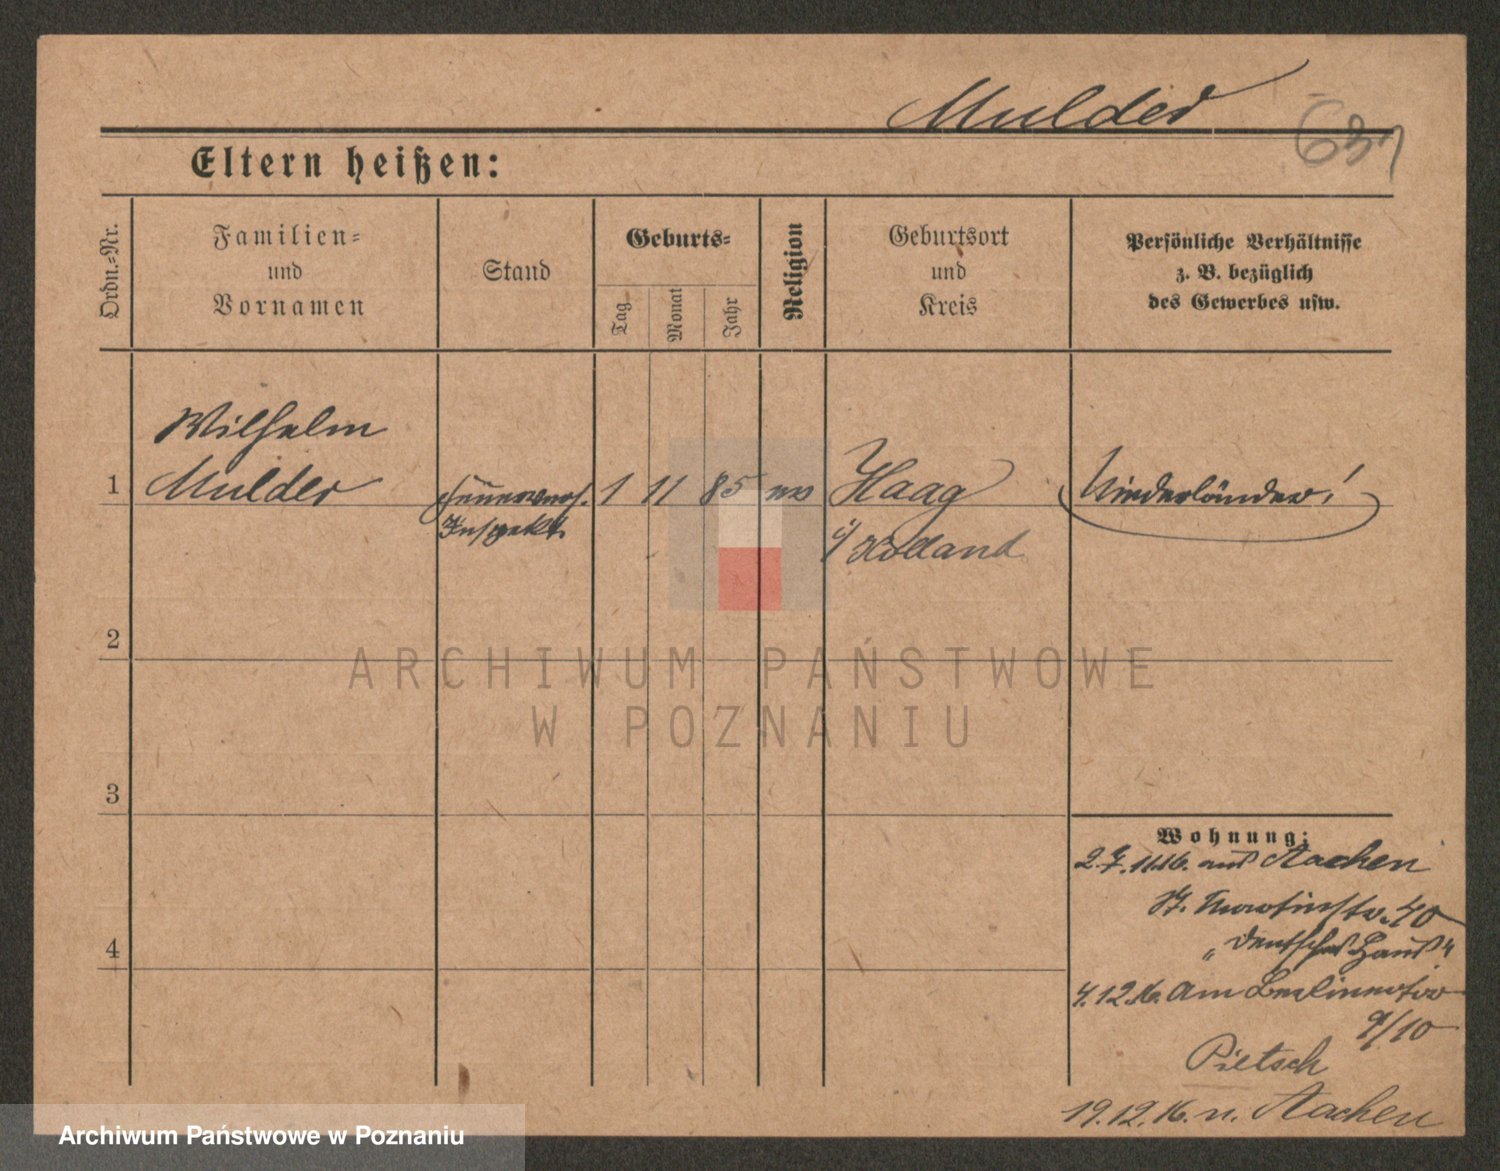 Mulder
Eltern heißen:
Ordn.-Nr.
Familien-
und
Vornamen
Stand
Geburts-
Tag
Monat
Jahr
Religion
Geburtsort
und
Kreis
Persönliche Verhältnisse
z. B. bezüglich
des Gewerbes usw.
1
Wilhelm
Mulder
Feuervers.
Inspekt.
1 11 85
ev
Haag
i/ Holland
Niederländer!
2
3
4
Wohnung:
11.16. aus Aachen
St. Martinstr. 40
„Deutsches Haus“
4.12.16. Am Berlinertor
9/10
Pietsch
19.12.16. n. Aachen
ARCHIWUM PAŃSTWOWE
W POZNANIU
Archiwum Państwowe w Poznaniu